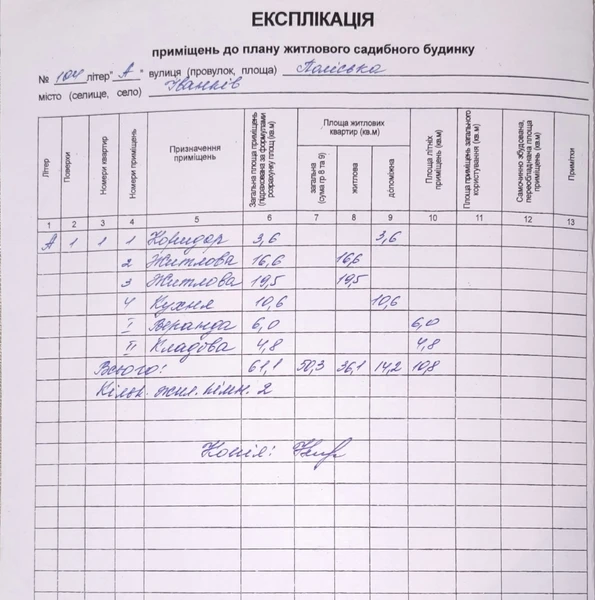 ЕКСПЛІКАЦІЯ
приміщень до плану житлового садибного будинку
№ 104 літер " А " вулиця (провулок, площа) Поліська
місто (селище, село) Іванків
Літер Поверхи Номери квартир Номери приміщень Призначення приміщень Загальна площа приміщень (підрахована за формулами розрахунку площ) (кв.м) Площа житлових квартир (кв.м) загальна (сума гр 8 та 9) житлова допоміжна Площа літніх приміщень (кв.м) Площа приміщень загального користування (кв.м) Самочинно збудована, переобладнана площа приміщень (кв.м) Примітки
1 2 3 4 5 6 7 8 9 10 11 12 13
А 1 1 1 Коридор 3,6 3,6
2 Житлова 16,6 16,6
3 Житлова 19,5 19,5
4 Кухня 10,6 10,6
I Веранда 6,0 6,0
II Кладова 4,8 4,8
Всього: 61,1 50,3 36,1 14,2 10,8
Кільк. жил. кімн. 2
Копія: